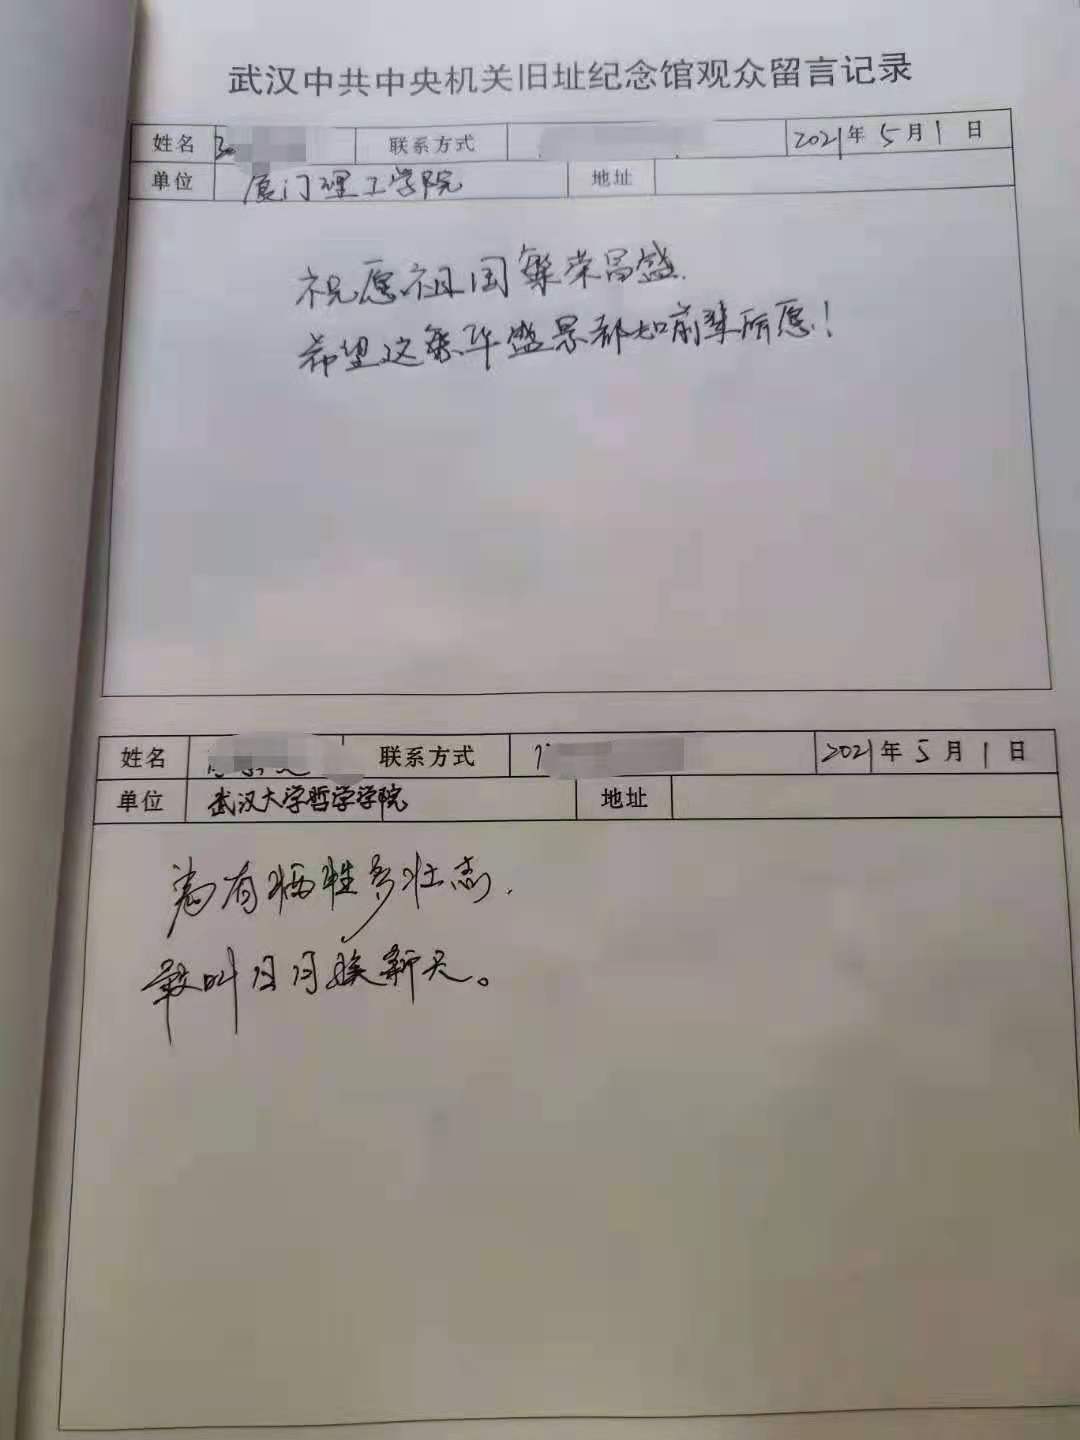 武汉中共中央机关旧址纪念馆观众留言记录
姓名 联系方式 2021年5月1日
单位 厦门理工学院 地址
祝愿祖国繁荣昌盛.
希望这繁华盛景都如前辈所愿!
姓名 联系方式 2021年5月1日
单位 武汉大学哲学学院 地址
为有牺牲多壮志.
敢叫日月换新天。